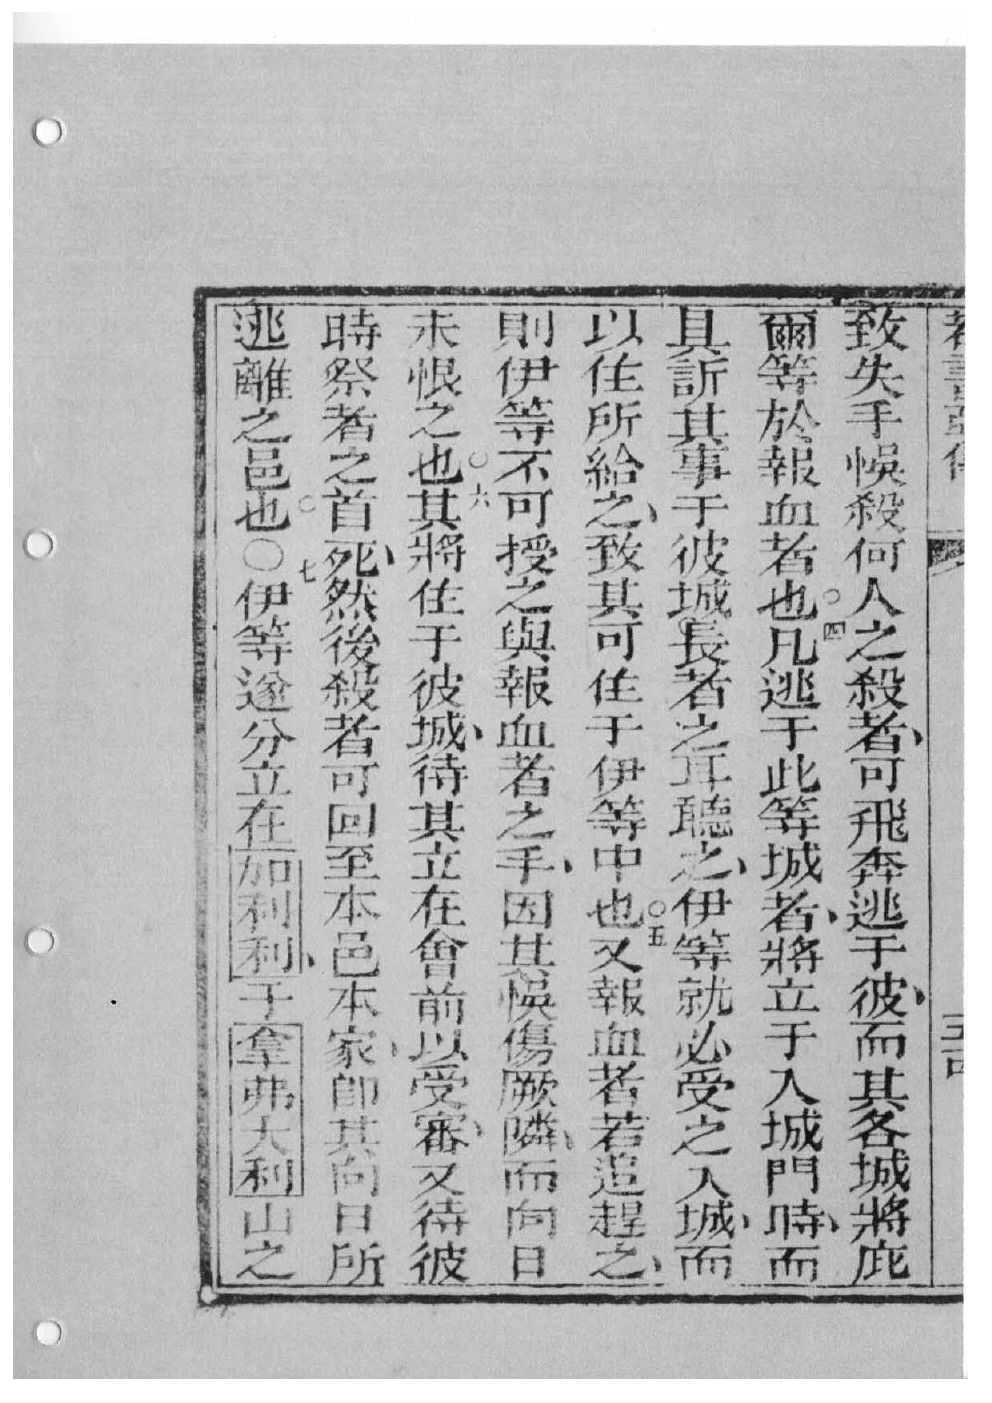 致失手悞殺何人之殺者、可飛奔逃于彼、而其各城將庇
爾等於報血者也○四凡逃于此等城者、將立于入城門時、而
具訴其事于彼城長者之耳聽之、伊等就必受之入城、而
以住所給之、致其可住于伊等中也○五又報血者若追趕之、
則伊等不可授之與報血者之手、因其悞傷厥隣、而向日
未恨之也○六其將住于彼城、待其立在會前以受審、又待彼
時祭者之首死、○七然後殺者可回至本邑本家、卽其向日所
逃離之邑也○伊等遂分立在加利利、于拿弗大利山之